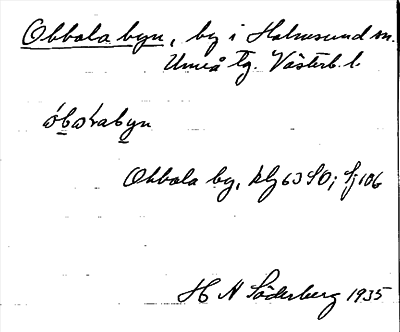 Obbola byn, by i Holmsund sn.
Umeå tg. Västerb. l.
Obbola by, klj 63 SO; Sj 106
H N Söderberg 1935